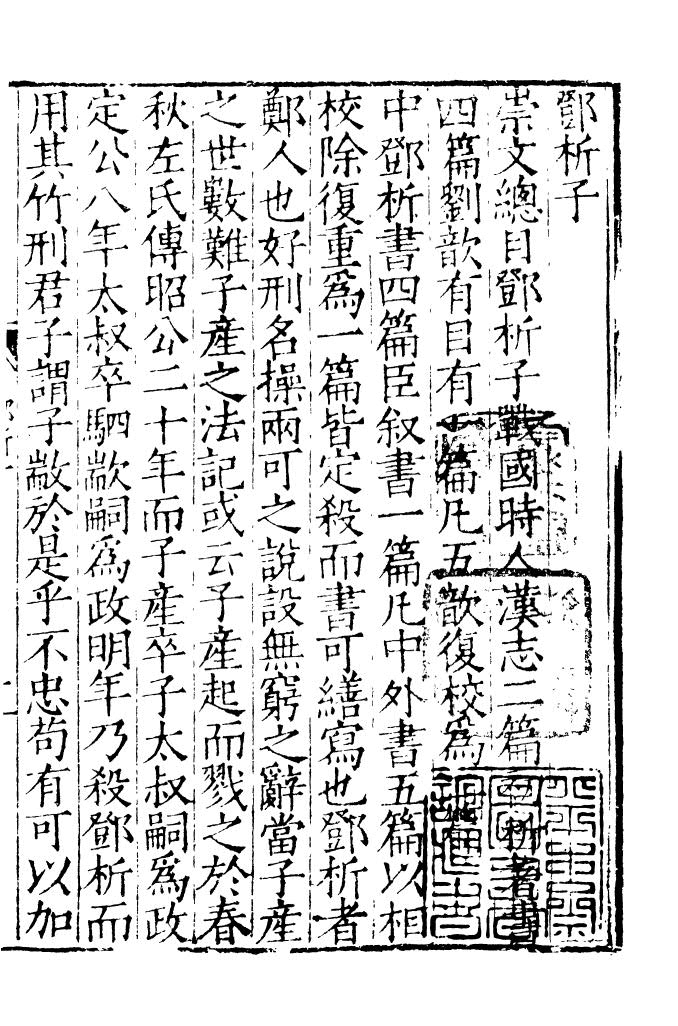 鄧析子
崇文總目鄧析子戰國時人漢志二篇初析著書
四篇劉歆有目有一篇凡五歆復校為二篇
中鄧析書四篇臣叙書一篇凡中外書五篇以相
校除復重為一篇皆定殺而書可繕寫也鄧析者
鄭人也好刑名操兩可之說設無窮之辭當子產
之世數難子產之法記或云子產起而戮之於春
秋左氏傳昭公二十年而子產卒子太叔嗣為政
定公八年太叔卒駟歂嗣為政明年乃殺鄧析而
用其竹刑君子謂子歂於是乎不忠苟有可以加